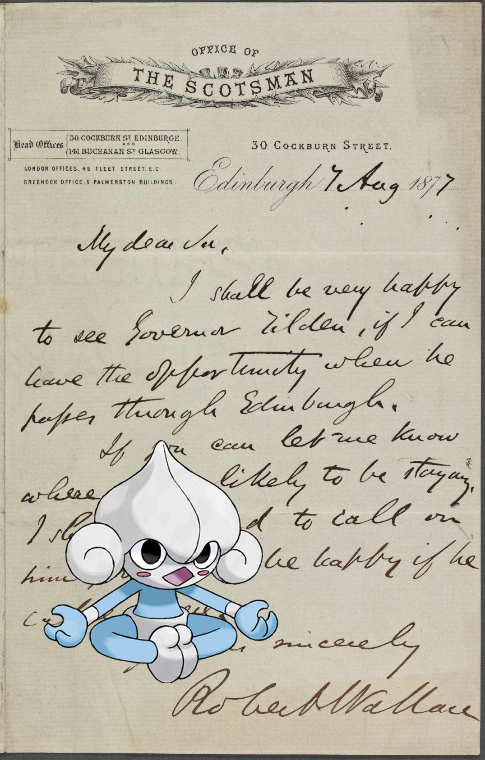 OFFICE OF
THE SCOTSMAN
Head Offices 30 COCKBURN ST. EDINBURGH.
AND
141 BUCHANAN ST. GLASGOW.
LONDON OFFICES, 45 FLEET STREET, E.C.
GREENOCK OFFICE, 5 PALMERSTON BUILDINGS.
30 COCKBURN STREET.
Edinburgh 7 Aug 1877
My dear Sir,
I shall be very happy
to see Governor Tilden, if I can
have the opportunity when he
passes through Edinburgh.
If you can let me know
where likely to be staying,
I to call on
him be happy if he
sincerely
Robert Wallace